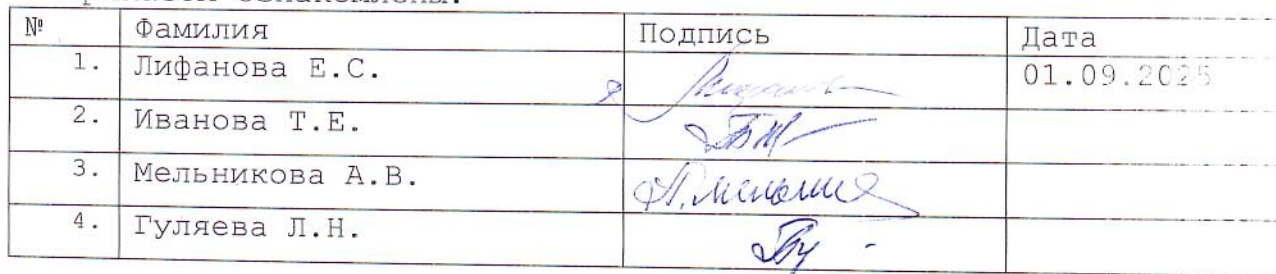 ознакомлены.
№ Фамилия Подпись Дата
1. Лифанова Е.С. 01.09.2025
2. Иванова Т.Е.
3. Мельникова А.В.
4. Гуляева Л.Н.